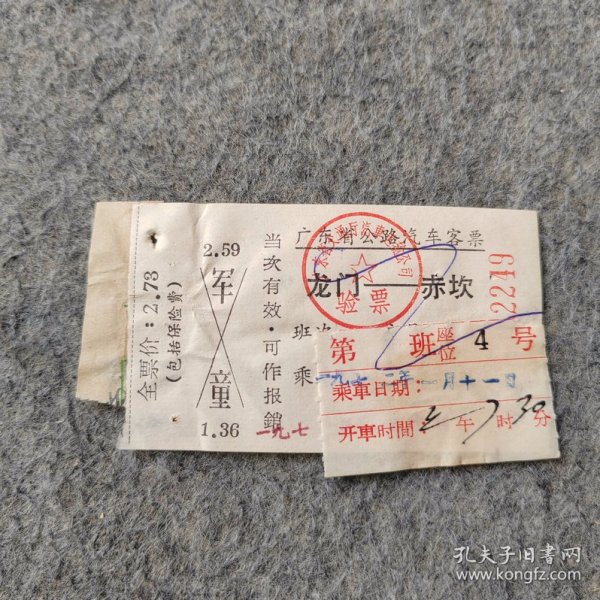 广东省公路汽车客票
龙门——赤坎
2219
验票
全票价:2.73
(包括保险费)
2.59
军
童
1.36
当次有效·可作报销
班次
乘
一九七
第 班 座位 4 号
乘車日期: 一月十一日
开車时間 午 7 时 30 分
孔夫子旧書网
www.kongfz.com